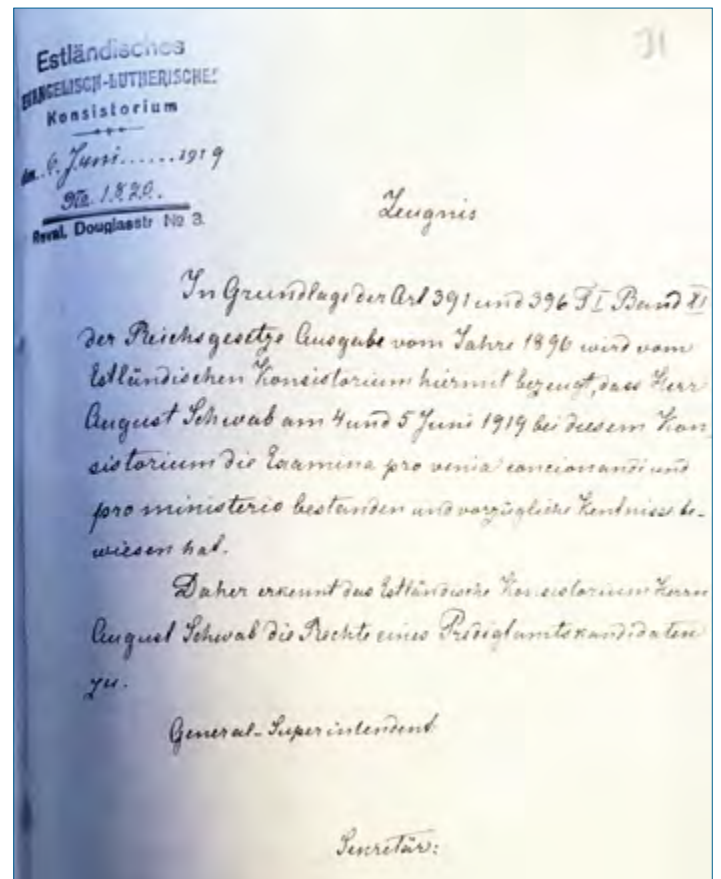 31
Estländisches
EVANGELISCH-LUTHERISCHES
Konsistorium
den 6. Juni ...... 1919
No. 1820.
Reval, Douglasstr No 3.
Zeugnis
In Grundlage der Art 391 und 396 T I Band XI
der Reichsgesetze Ausgabe vom Jahre 1896 wird vom
Estländischen Konsistorium hiermit bezeugt, dass Herr
August Schwab am 4 und 5 Juni 1919 bei diesem Kon
sistorium die Examina pro venia concionandi und
pro ministerio bestanden und vorzügliche Kentnisse be-
wiesen hat.
Daher erkennt das Estländische Konsistorium Herrn
August Schwab die Rechte eines Predigtamtskandidaten
zu.
General-Superintendent
Sekretär: